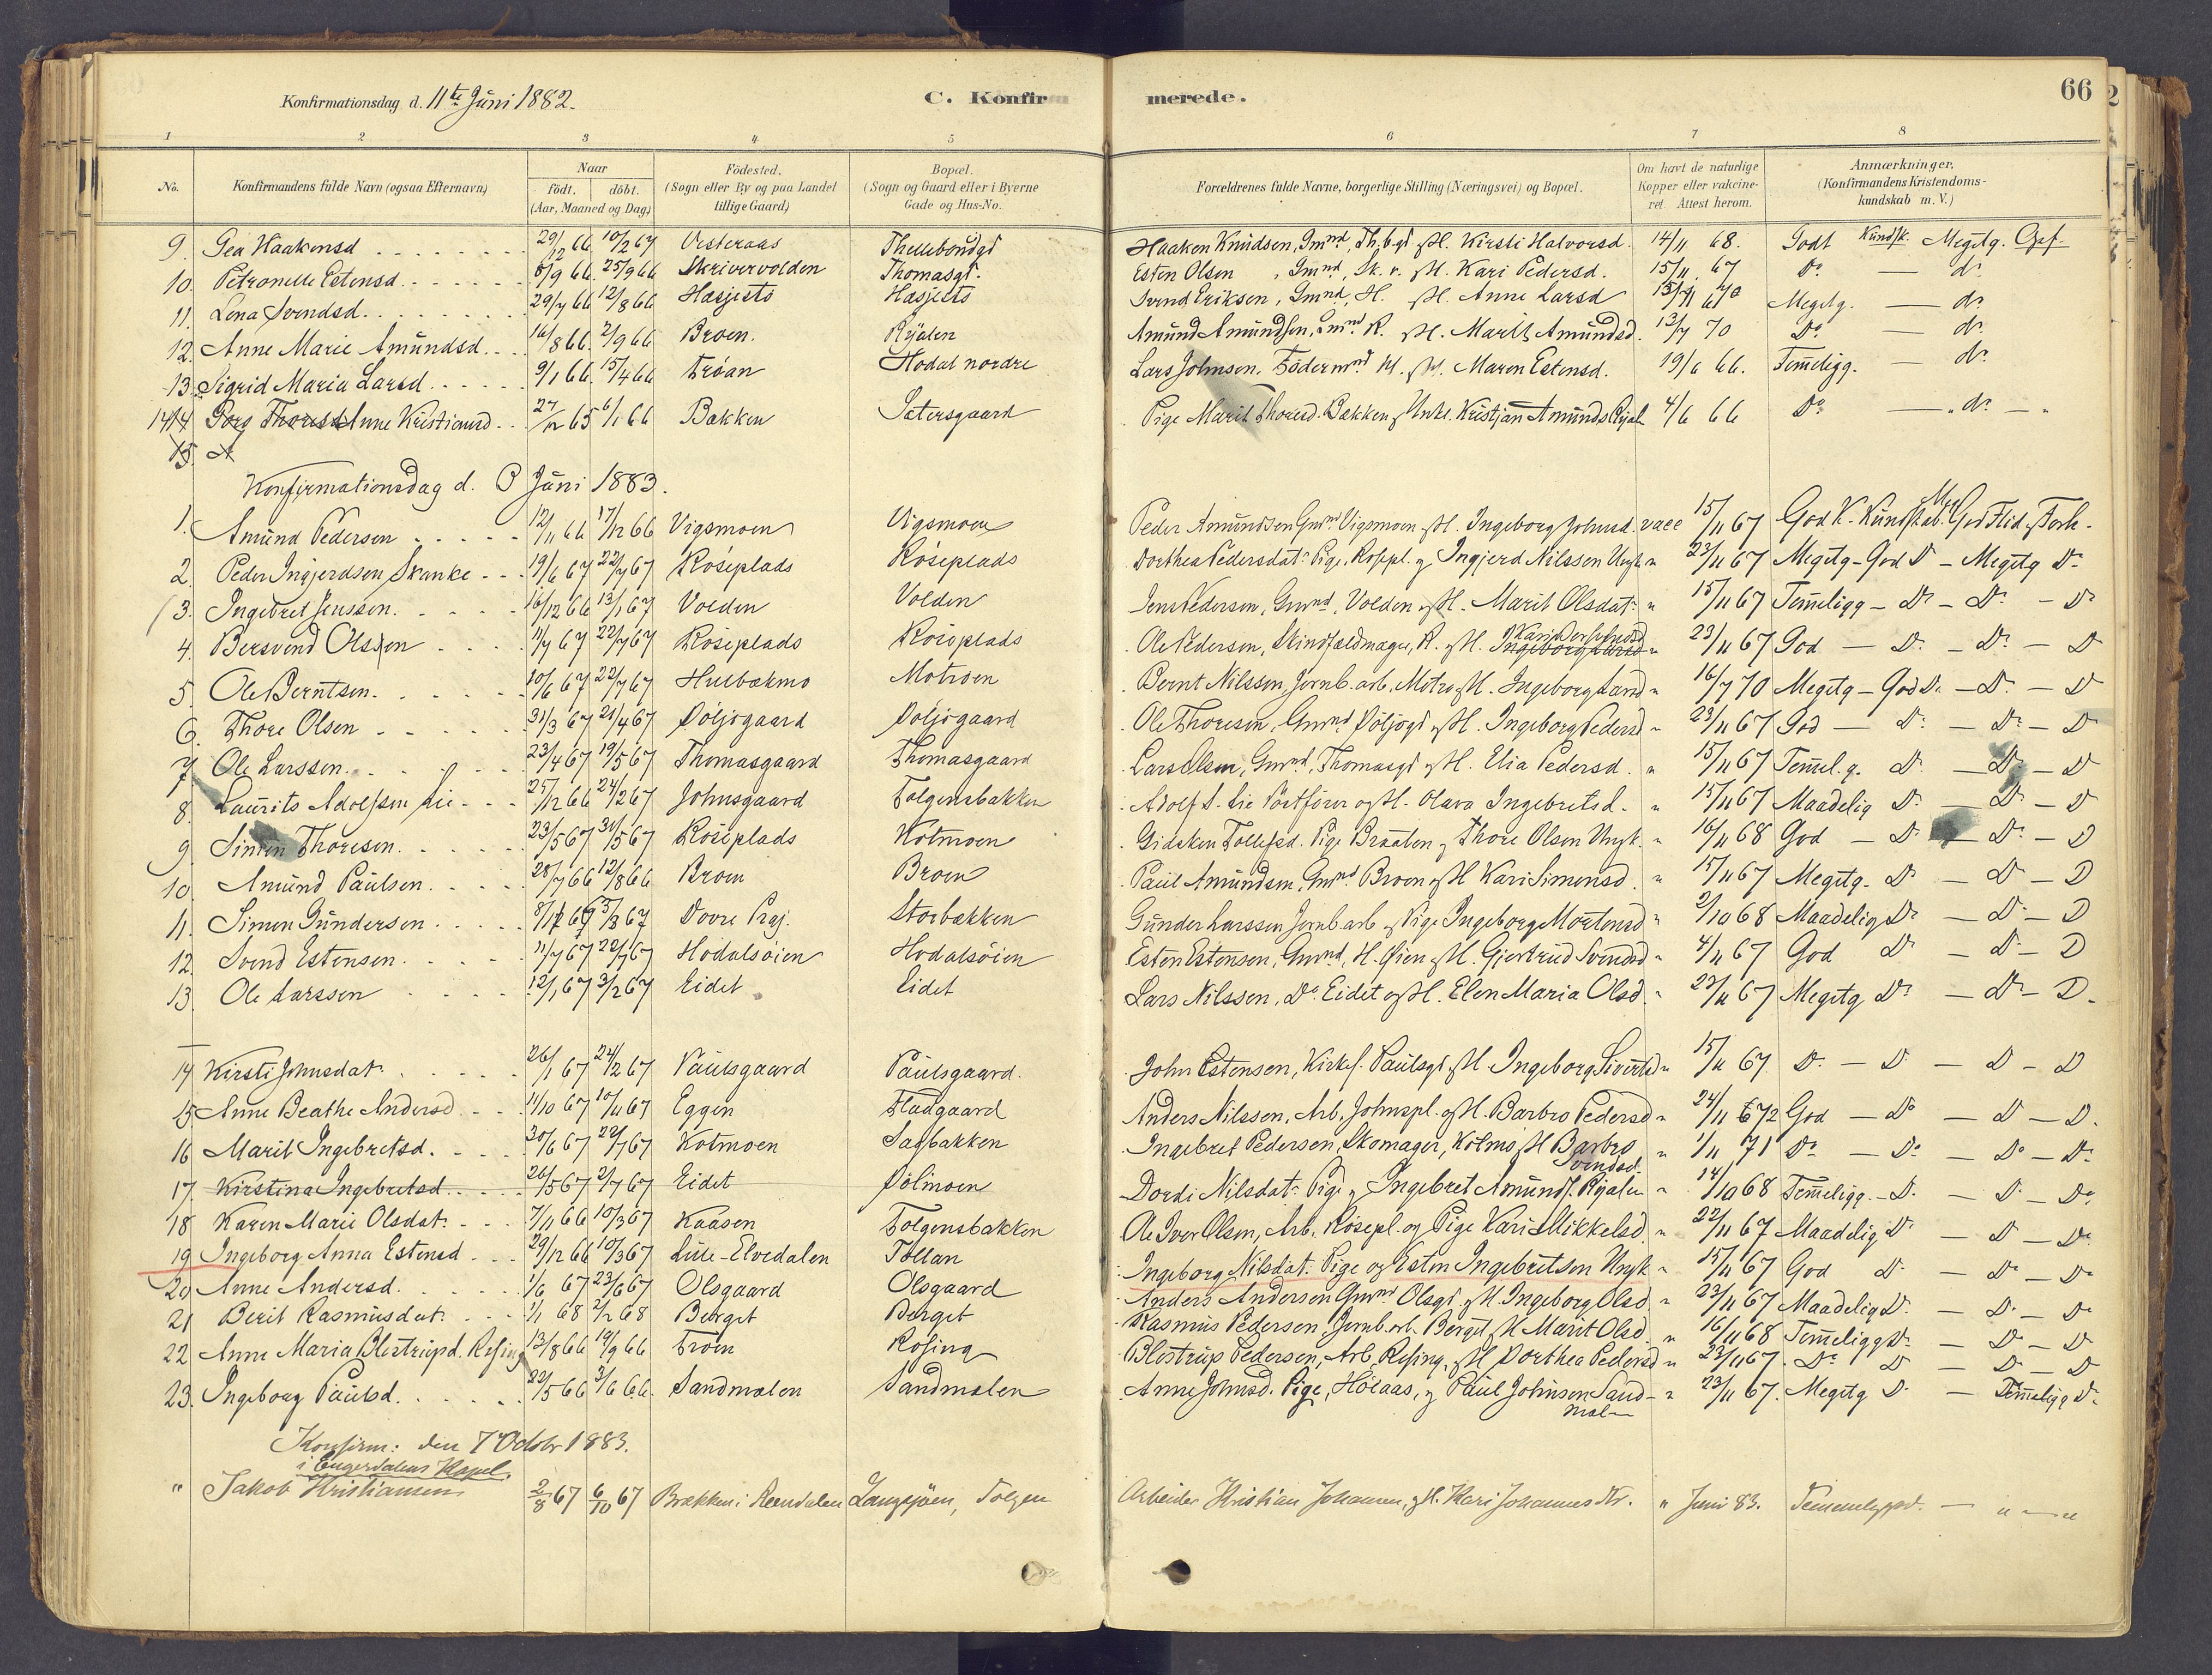 Konfirmationsdag d. 11te Juni 1882.
C. Konfirmerede.
66
1 2 3 4 5 6 7 8
No. Konfirmandens fulde Navn (ogsaa Efternavn) Naar födt. döbt. (Aar, Maaned og Dag) Födested. (Sogn eller By og paa Landet tillige Gaard) Bopæl. (Sogn og Gaard eller i Byerne Gade og Hus-No. Forældrenes fulde Navne, borgerlige Stilling (Næringsvei) og Bopæl. Om havt de naturlige Kopper eller vakcineret. Attest herom. Anmærkninger. (Konfirmandens Kristendomskundskab m. V.)
9. Gea Haakensd 29/12 66 10/2 67 Vesteraas Thellebøndgd Haaken Knudsen, Gmnd, Th.b.gd og H. Kirsti Halvorsd. 14/11 68. Godt Kundsk. Megetg. Opf.
10. Petronelle Estensd 8/9 66. 25/9 66 Skrivervolden Thomasgd. Esten Olsen, Gmnd, Sk.v. og H. Kari Pedersd. 15/11 67 Do — do
11. Lena Svendsd. 29/7 66 12/8 66 Hasjesto Hasjesto Svend Eriksen, Gmnd, H. og H. Anne Larsd Megetg. — do
12. Anne Marie Amundsd. 16/8 66. 2/9 66 Broen. Ryålen Amund Amundsen, Gmnd R. og H. Marit Amundsd. 13/7 70 Do — do
13. Sigrid Maria Larsd. 9/1 66. 15/4 66 Erøan Hodal nordre Lars Johnsen, Födermnd H. og H. Maren Estensd. 19/6 66. Temeligg. — do
14 Anne Kristiansd. 27/12 65 6/1 66 Bakken Sætersgaard Pige Marit Thoresd. Bakken og Unkl. Kristjan Amunds Ryål 4/6 66 Do — do —
15.
Konfirmationsdag d. 3 Juni 1883.
1. Amund Pedersen 12/11 66 17/12 66 Vigsmoen Vigsmoen Peder Amundsen Gmnd Vigsmoen og H. Ingeborg Johnsd. vacc 15/11 67 God K. Kundskab. Meg God Flid og Forh.
2. Peder Ingjerdsen Skanke 19/6 67 22/7 67 Röseplads Röseplads Dorthea Pedersdat. Pige, Röspl. og Ingjerd Nilssen Ungk " 23/11 67 Megetg - God D - Megetg Do
3. Ingebret Jenssen. 16/12 66 13/1 67 Volden Volden Jens Pedersen, Gmnd, Volden og H. Marit Olsdat. " 15/11 67 Temeligg - Do - Do - Do
4. Bersvend Olssen 11/7 67 22/7 67 Röseplads Röseplads Ole Pedersen, Skindfældmager, R. og H. Ingeborg Larsd " 23/11 67 God - Do - Do - D
5. Ole Berntsen. 10/6 67 22/7 67 Hulbækmo Motroen Bernt Nilssen Jernb.arb, Motro og H. Ingeborg Larsd " 16/7 70 Megetg - God Do - Do - D
6. Thore Olsen 31/3 67 21/4 67 Döljögaard Döljögaard Ole Thoresen, Gmnd Döljögd og H. Ingeborg Pedersd " 23/11 67 God - Do - Do - D
7. Ole Larssen. 23/4 67 19/5 67 Thomasgaard Thomasgaard Lars Olsen, Gmnd, Thomasgd og H. Elia Pedersd. " 15/11 67 Temel.g. Do - Do - D
8. Laurits Adolfsen Lie 25/12 66 24/2 67 Johnsgaard Tolgensbakken Adolf A. Lie Postförer og H. Olava Ingebretsd. " 15/11 67 Maadelig Do - Do - D
9. Simen Thoresen. 23/5 67 31/5 67 Röseplads Kotmoen Gidsken Tollefsd. Pige Braaten og Thore Olsen Ungk. " 16/11 68 God - Do - Do - D
10. Amund Paulsen. 28/7 66 12/8 66 Broen Broen Paul Amundsen, Gmnd. Broen og H Kari Simensd. " 15/11 67 Megetg. Do - Do - D
11. Simen Gundersen Dovre Prgj. Storbækken Gunder Larssen Jernb.arb og Pige Ingeborg Mortensd " 2/10 68 Maadelig Do - Do - D
12. Svend Estensen. 11/7 67 22/7 67 Hodalsöien Hodalsöien Esten Estensen, Gmnd, H. öien og H. Gjertrud Svendsd " 4/11 67 God Do - Do - D
13. Ole Larssen 12/1 67 3/2 67 Eidet Eidet Lars Nilssen, Do Eidet og H. Elen Maria Olsd. " 23/11 67 Megetg Do - Do - D.
14 Kirsti Johnsdat. 26/1 67 24/2 67 Paulsgaard Paulsgaard. John Estensen, Kirkes. Paulsgd og H. Ingeborg Sivertsd " 15/11 67 Do - D - D - D
15 Anne Beathe Andersd 11/10 67 10/11 67 Eggen Fladgaard Anders Nilssen, Arb, Johnspl. og H. Barbro Pedersd " 24/11 72 God - Do - D - D.
16 Marit Ingebretsd. 30/6 67 22/7 67 Kotmoen Sagbakken Ingebret Pedersen, Skomager, Kotmo, og H Barbro Svendsd. " 1/11 71 Do - Do - Do - Do
17. Kirstina Ingebretsd. 26/5 67 2/7 67 Eidet Pölmoen Dordi Nilsdat. Pige og Ingebret Amunds. Ryålen " 14/10 68 Temeligg. - D. - D - Do
18 Karen Marie Olsdat. 7/11 66 10/3 67 Kaasen Tolgensbakken Ole Iver Olsen, Arb. Rösepl. og Pige Kari Mikkelsd. " 22/11 67 Maadelig Do - D - Do
19 Ingeborg Anna Estensd 29/12 66 10/3 67 Lille-Elvedalen Tollan Ingeborg Nilsdat. Pige og Esten Ingebretsen Ungk " 15/11 67 God Do - Do - Do
20 Anne Andersd. 1/6 67 23/6 67 Olsgaard Olsgaard Anders Andersen Gmnd Olsgd, og H. Ingeborg Olsd. " 23/11 67 Maadelig Do - D - Do
21 Berit Rasmusdat. 1/1 68 2/2 68 Berget Berget Rasmus Pedersen Jernb.arb. Berget og H Marit Olsd. " 16/11 68 Temeligg Do - Do - D
22 Anne Maria Blestrupd. Rösing 13/8 66 19/9 66 Eroen Rösing Blestrup Pedersen, Arb, Rösing, og H Dorthea Pedersd " 23/11 67. Do D - D - D
23. Ingeborg Paulsd. 22/5 66 3/6 66. Sandmælen Sandmælen Anne Johnsd. Pige, Höiaas, og Paul Johnsen Sandmæl- " 23/11 67. Megetg D. - Temeligg Do
Konfirm: den 7 Octobr 1883.
i Engerdalens Kapel.
" Jakob Kristiansen 2/8 67 6/10 67 Brækken i Reendalen Langsjöen, Tolgen Arbeider Kristian Johansen, og H. Kari Johannesdtr. " Juni 83. — " — "